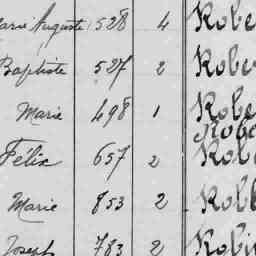 Marie Auguste 528 4 Robe
Baptiste 527 2 Rober
Marie 498 1 Robe
Robe
Félix 657 2 Robe
Marie 853 2 Robi
Joseph 783 2 Robin